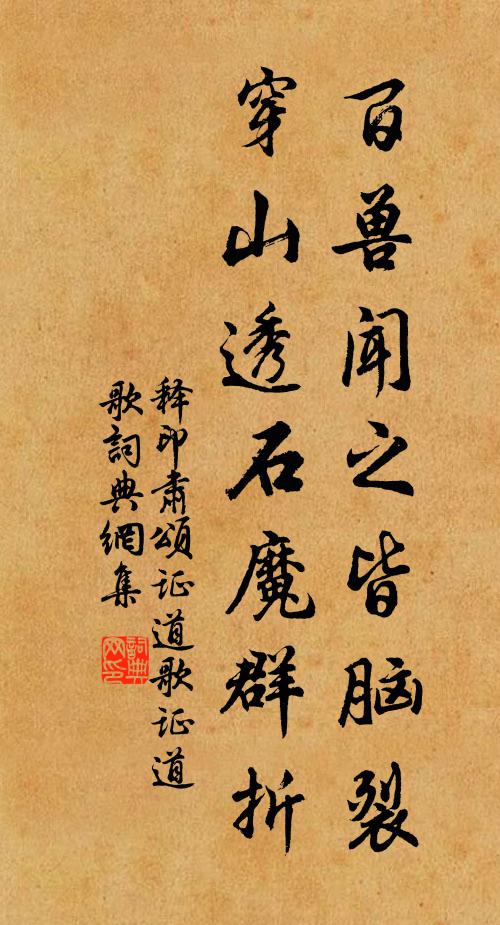 百兽闻之皆脑裂
穿山透石魔群折
释印肃颂证道歌证道
歌詞典網集
詞典
网印